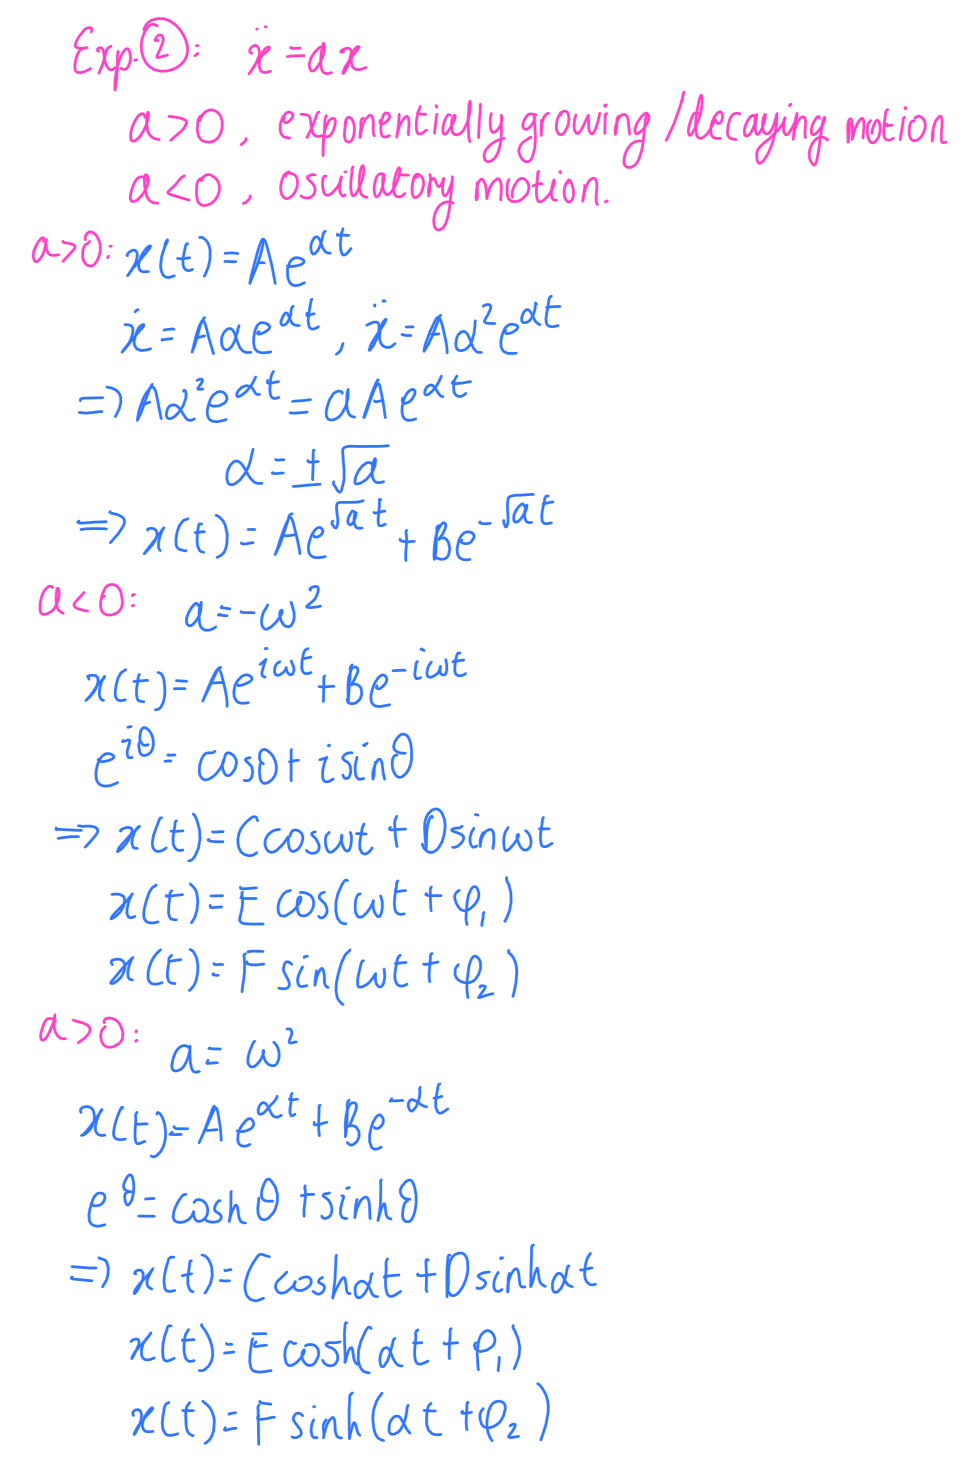 Exp. ②: ẍ = ax
a>0, exponentially growing/decaying motion
a<0, oscillatory motion.
a>0: x(t) = Ae^{αt}
ẋ = Aαe^{αt}, ẍ = Aα²e^{αt}
⇒ Aα²e^{αt} = aAe^{αt}
α = ±√a
⇒ x(t) = Ae^{√a t} + Be^{-√a t}
a<0: a = -ω²
x(t) = Ae^{iωt} + Be^{-iωt}
e^{iθ} = cosθ + isinθ
⇒ x(t) = Ccosωt + Dsinωt
x(t) = E cos(ωt + φ₁)
x(t) = F sin(ωt + φ₂)
a>0: a = ω²
x(t) = Ae^{αt} + Be^{-αt}
e^θ = coshθ + sinhθ
⇒ x(t) = Ccoshαt + Dsinhαt
x(t) = E cosh(αt + φ₁)
x(t) = F sinh(αt + φ₂)